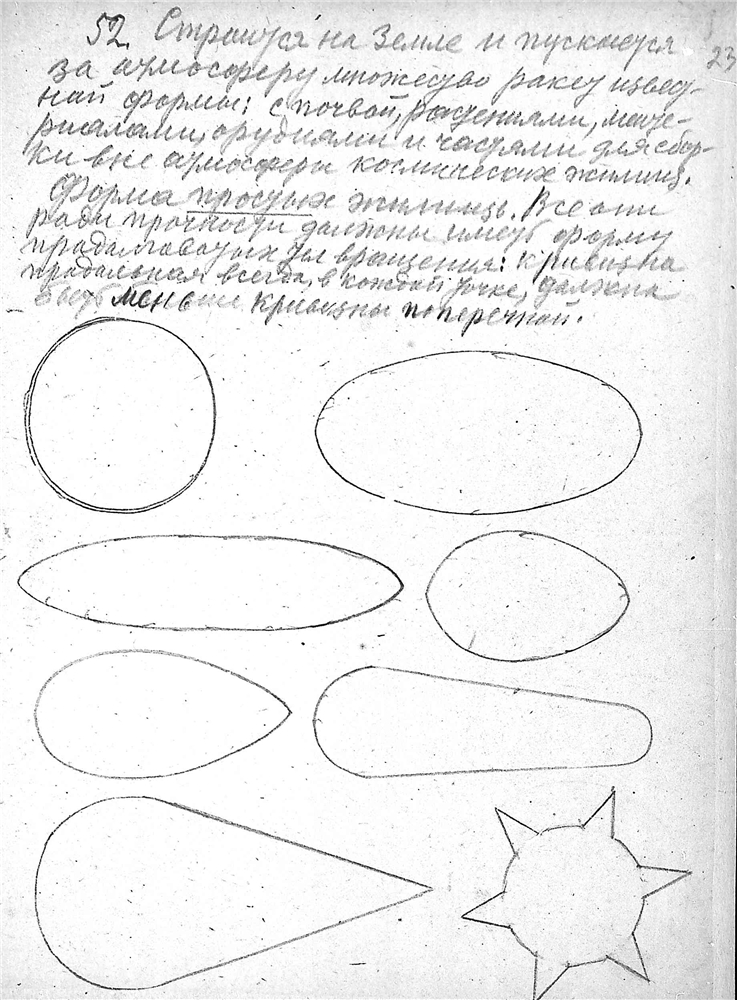 52. Строится на Земле и пускается
23
за атмосферу множество ракет извест-
ной формы: с почвой, растениями, мате-
риалами, орудиями и частями для сбор-
ки вне атмосферы космических жилищ.
Форма простых жилищ. Все они
ради прочности должны иметь форму
продолговатых тел вращения: кривизна
продольная всегда, в каждой точке, должна
быть меньше кривизны поперечной.